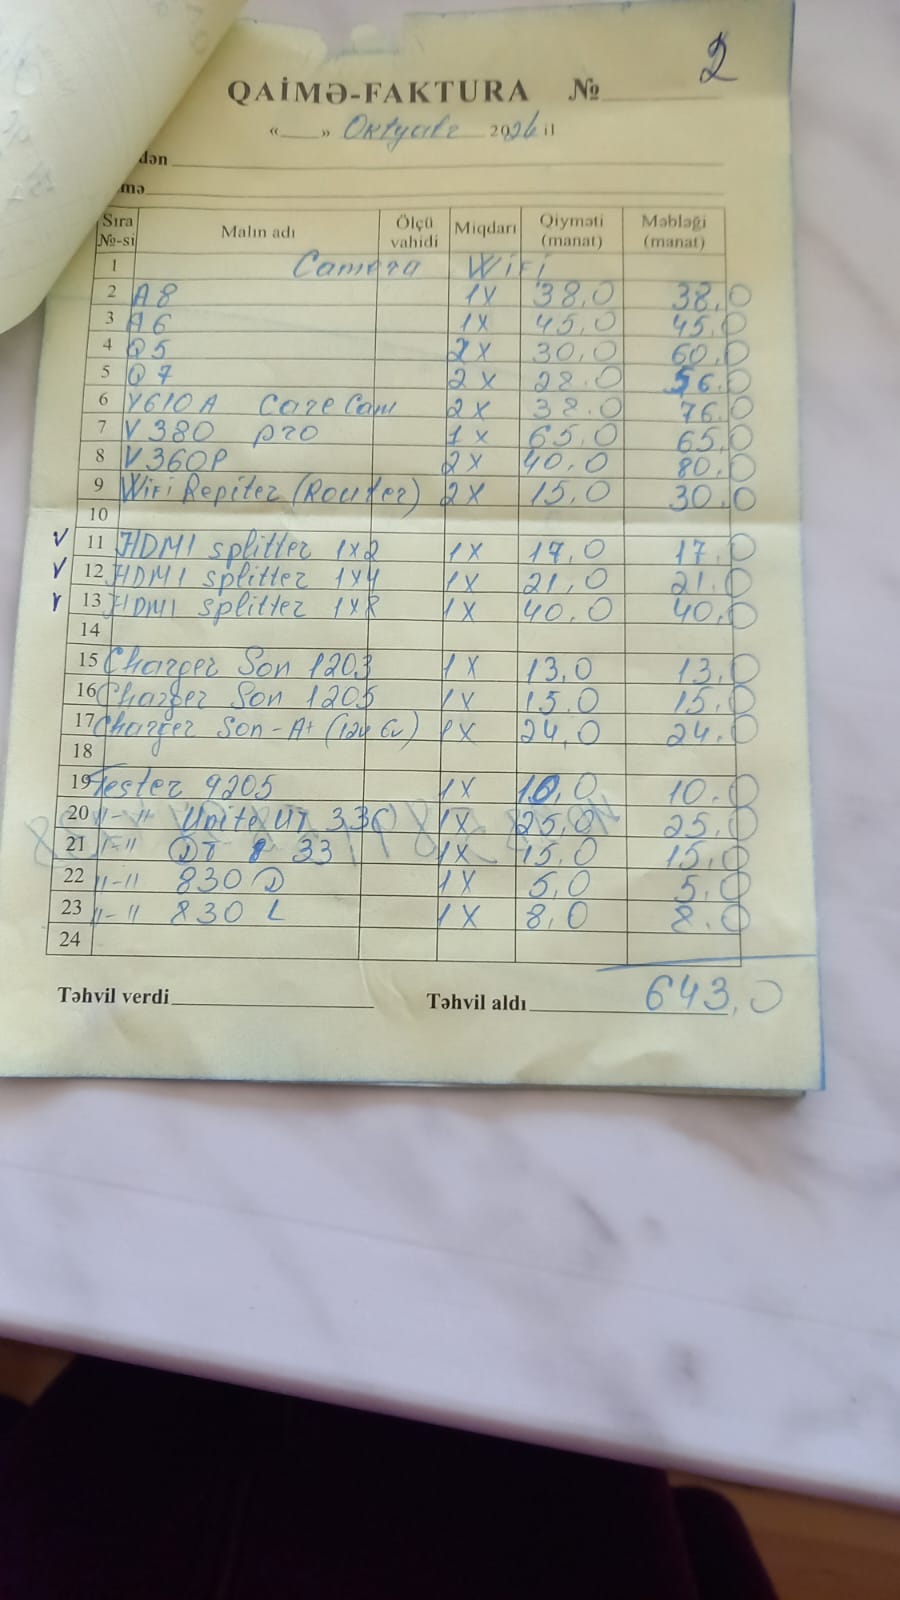 2
QAİMƏ-FAKTURA №
« » Oktyabr 2026 il
dən
mə
Sıra №-si Malın adı Ölçü vahidi Miqdarı Qiyməti (manat) Məbləği (manat)
1 Camera WiFi
2 A8 1x 38,0 38,0
3 A6 1x 45,0 45,0
4 Q5 2x 30,0 60,0
5 Q7 2x 28.0 56.0
6 Y610A CareCam 2x 38.0 76.0
7 V380 pro 1x 65,0 65,0
8 V360P 2x 40,0 80,0
9 WiFi Repiter (Router) 2x 15,0 30,0
10
V 11 HDMI splitter 1x2 1x 17,0 17,0
V 12 HDMI splitter 1x4 1x 21,0 21.0
V 13 HDMI splitter 1x8 1x 40,0 40,0
14
15 Charger Son 1203 1x 13,0 13,0
16 Charger Son 1205 1x 15,0 15,0
17 Charger Son-A+ (12v 6v) 1x 24,0 24,0
18
19 Tester 9205 1x 10,0 10.0
20 "-" Unite UT 33C 1x 25,0 25,0
21 "-" DT 33 1x 15,0 15,0
22 "-" 830 D 1x 5,0 5,0
23 "-" 830 L 1x 8,0 8.0
24
Təhvil verdi Təhvil aldı 643,0